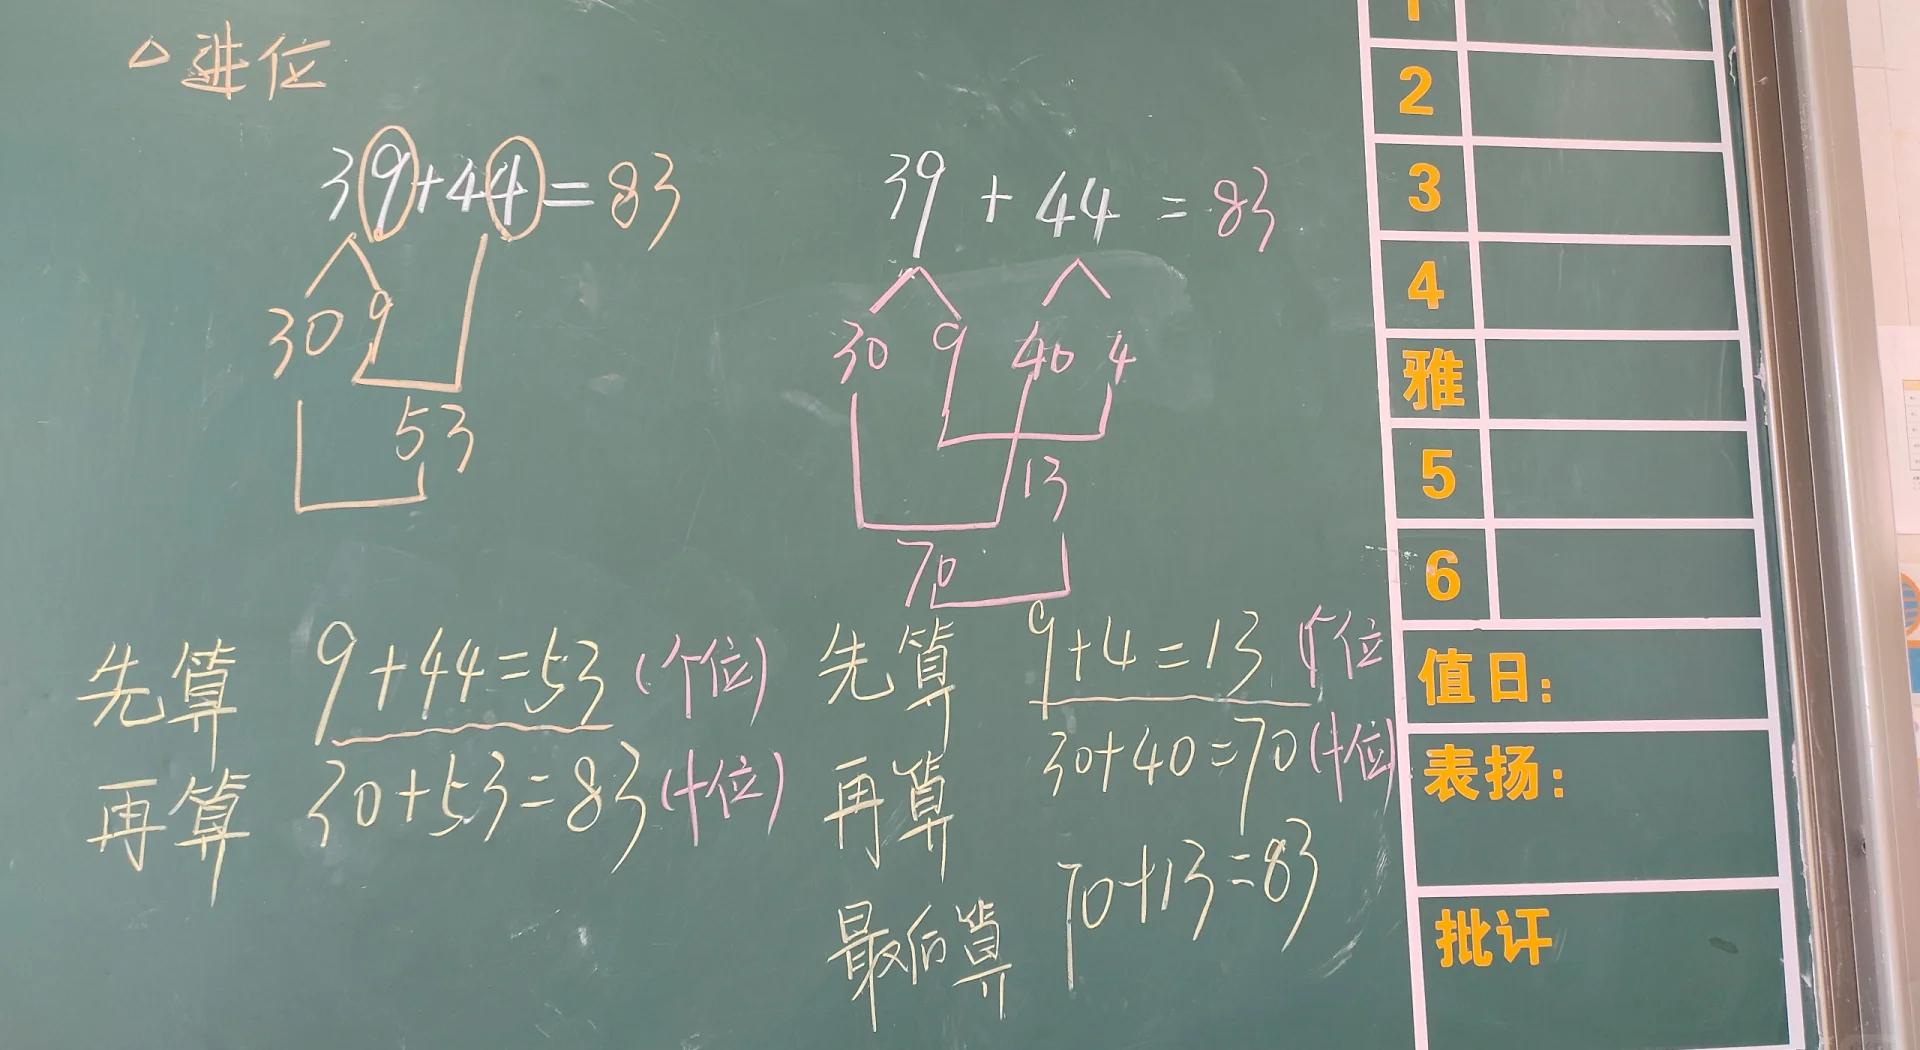 △进位
39+44=83
30 9
53
先算 9+44=53(个位)
再算 30+53=83(十位)
39+44=83
30 9 40 4
13
70
先算 9+4=13(个位
再算 30+40=70(十位)
最后算 70+13=83
1
2
3
4
雅
5
6
值日:
表扬:
批评